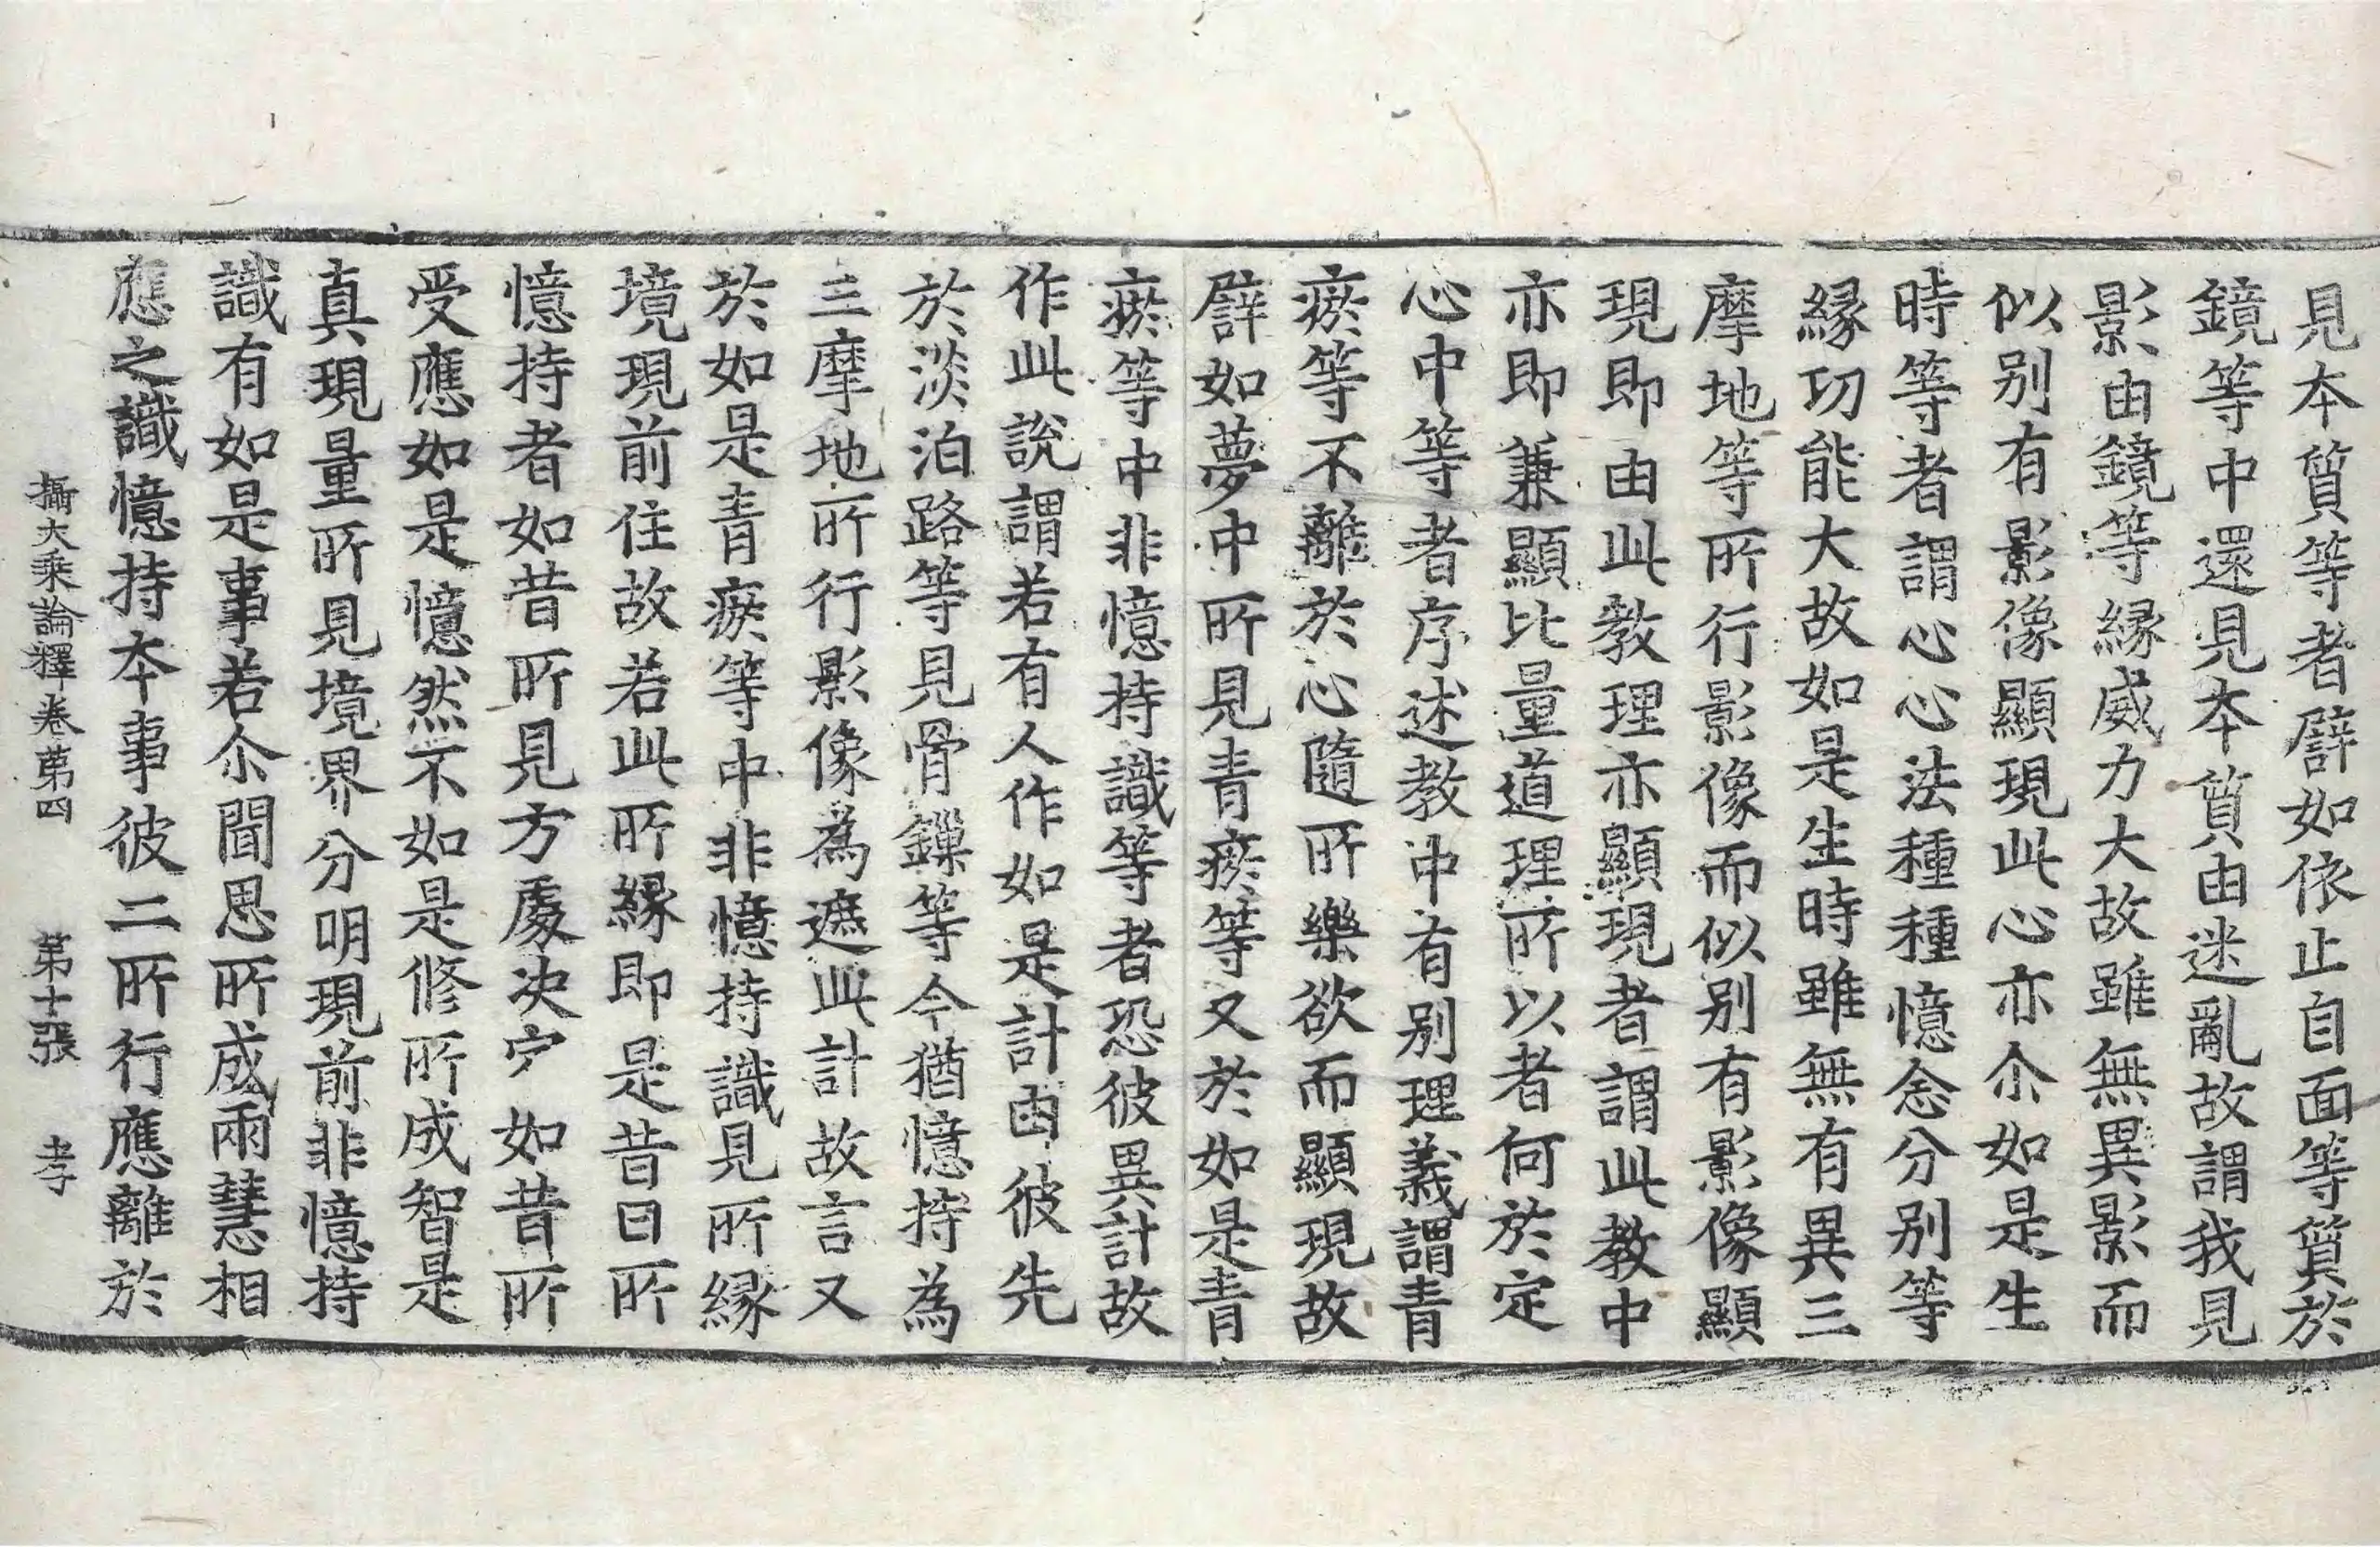 見本質等者譬如依止自面等質於
鏡等中還見本質由迷亂故謂我見
影由鏡等緣威力大故雖無異影而
似別有影像顯現此心亦尒如是生
時等者謂心心法種種憶念分別等
緣功能大故如是生時雖無有異三
摩地等所行影像而似別有影像顯
現即由此教理亦顯現者謂此教中
亦即兼顯比量道理所以者何於定
心中等者序述教中有別理義謂青
瘀等不離於心隨所樂欲而顯現故
譬如夢中所見青瘀等又於如是青
瘀等中非憶持識等者恐彼異計故
作此說謂若有人作如是計由彼先
於淡泊路等見骨鏁等今猶憶持為
三摩地所行影像為遮此計故言又
於如是青瘀等中非憶持識見所緣
境現前住故若此所緣即是昔曰所
憶持者如昔所見方處決定如昔所
受應如是憶然不如是修所成智是
真現量所見境界分明現前非憶持
識有如是事若尒聞思所成兩慧相
應之識憶持本事彼二所行應離於
攝大乘論釋卷第四 第十張 孝